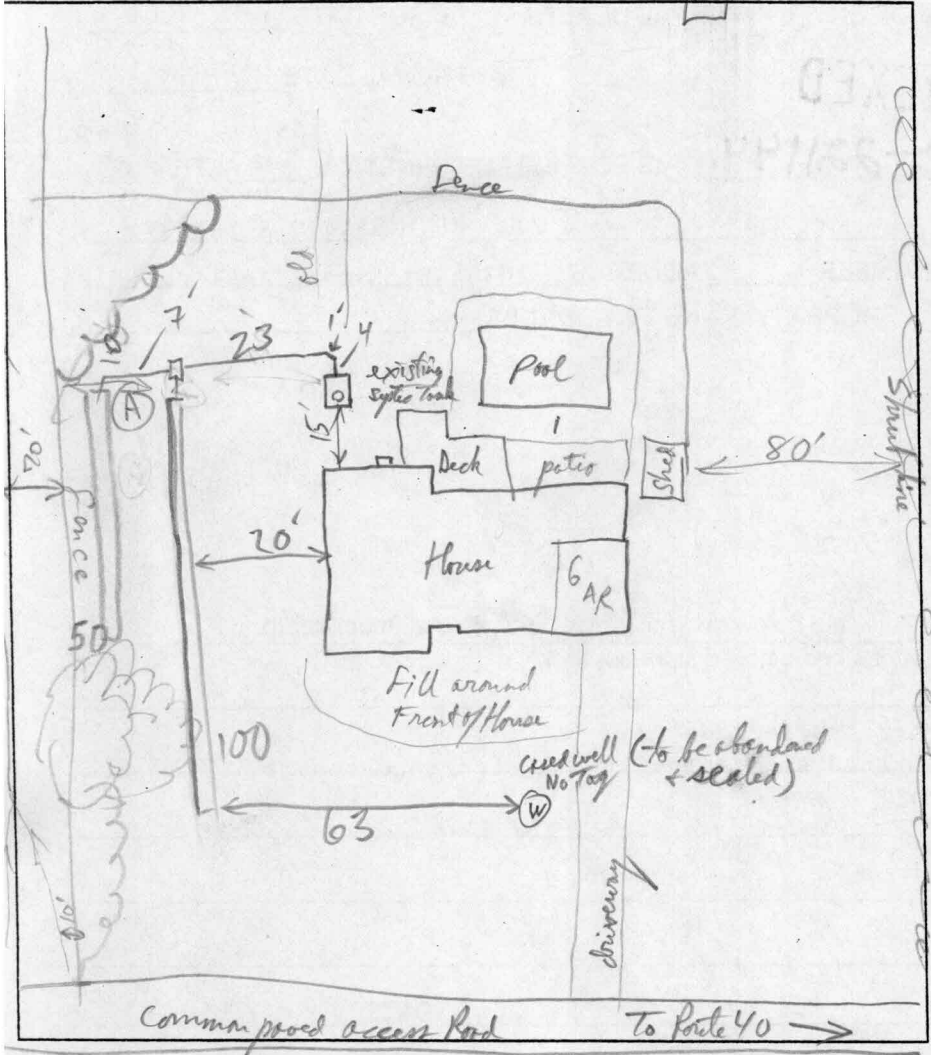 Fence
old
7'
23'
1'
4
existing
Septic Tank
Pool
A
15'
20'
Deck
patio
Shed
80'
Fence
20'
House
GAR
50
Fill around
Front of House
100
cased well
No Tag
(to be abandoned
+ sealed)
W
63
driveway
Common paved access Road
To Route 40